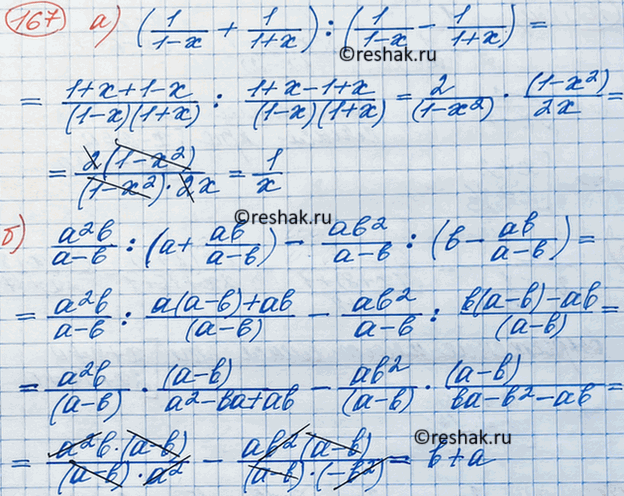 167 а) (1/(1-x) + 1/(1+x)) : (1/(1-x) - 1/(1+x)) =
= (1+x+1-x)/((1-x)(1+x)) : (1+x-1+x)/((1-x)(1+x)) = 2/(1-x²) · (1-x²)/2x =
= 2(1-x²)/((1-x²)·2x) = 1/x
©reshak.ru
б) a²b/(a-b) : (a + ab/(a-b)) - ab²/(a-b) : (b - ab/(a-b)) =
= a²b/(a-b) : (a(a-b)+ab)/(a-b) - ab²/(a-b) : (b(a-b)-ab)/(a-b) =
= a²b/(a-b) · (a-b)/(a²-ba+ab) - ab²/(a-b) · (a-b)/(ba-b²-ab) =
©reshak.ru
= a²b·(a-b)/((a-b)·a²) - ab²(a-b)/((a-b)·(-b²)) = b+a